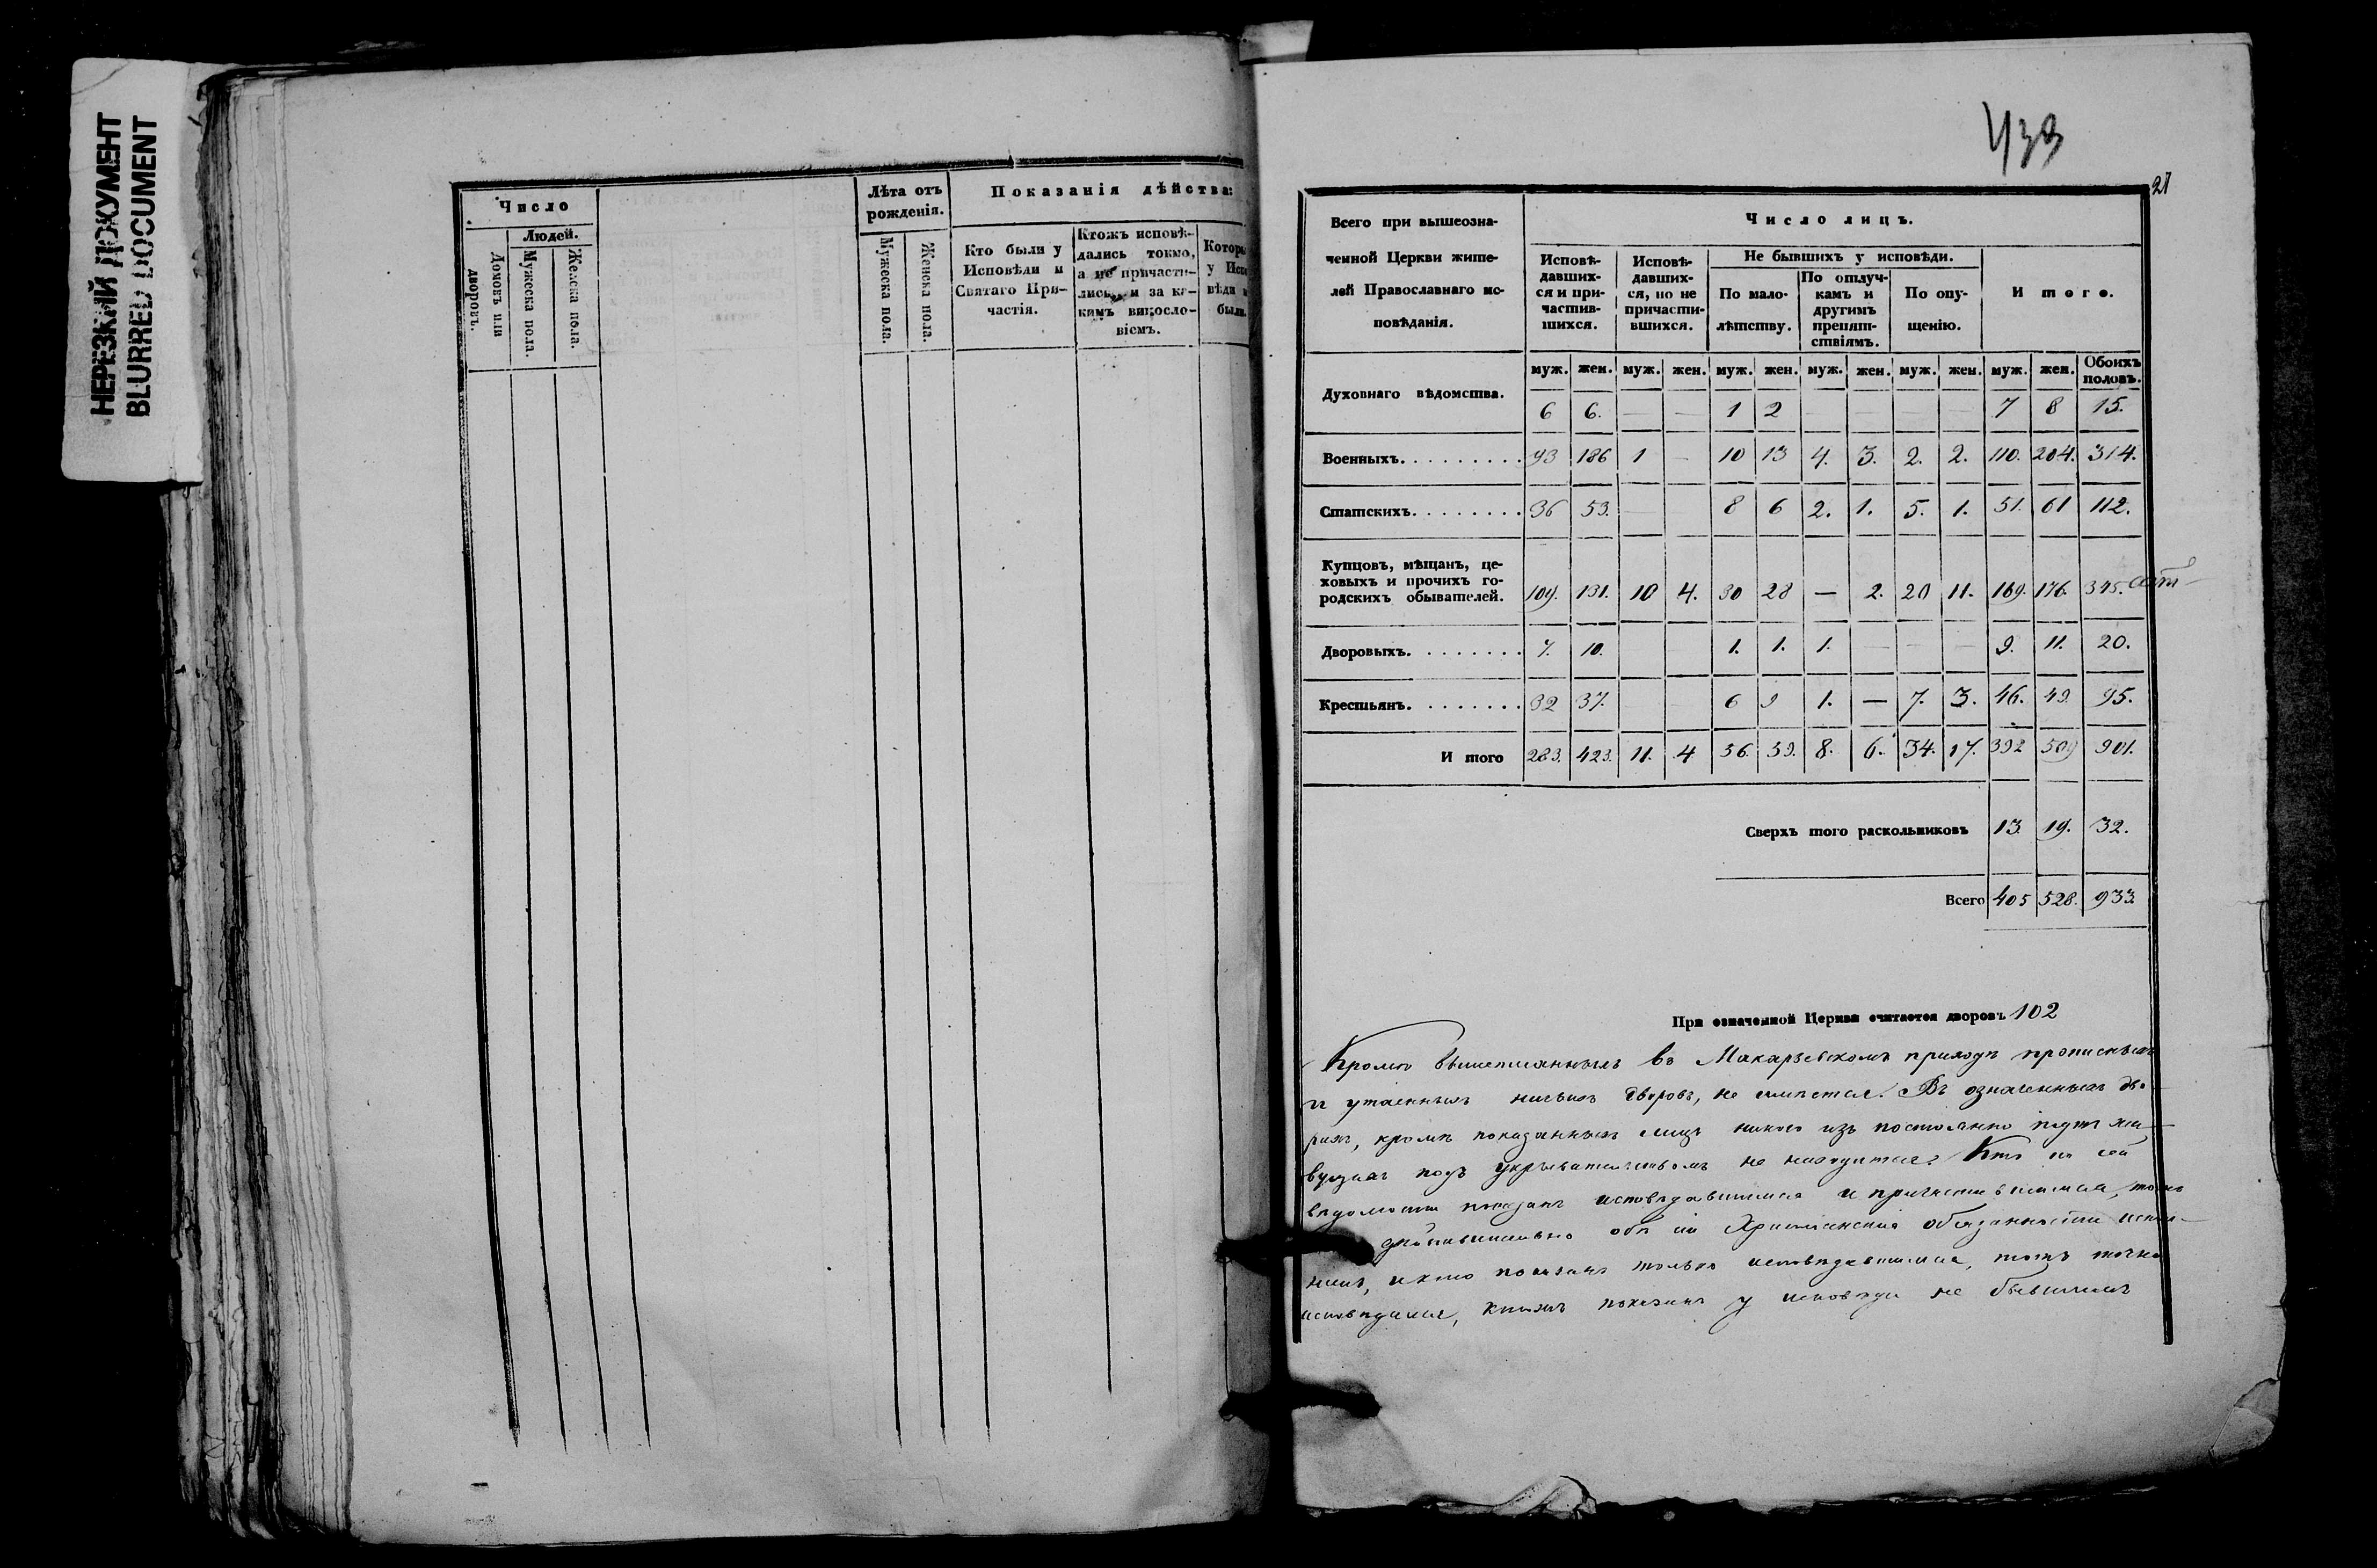 НЕРЕЗКИЙ ДОКУМЕНТ
BLURRED DOCUMENT
Число
Людей.
Домовъ или дворовъ.
Мужеска пола.
Женска пола.
Лѣта отъ рожденія.
Мужеска пола.
Женска пола.
Показанія дѣйства:
Кто были у
Исповѣди и
Святаго При-
частія.
Ктожъ исповѣ-
дались токмо,
а не причасти-
лись, и за ка-
кимъ виносло-
віемъ.
у
были.
433
Всего при вышеозна-
ченной Церкви жите-
лей Православнаго ис-
повѣданія.
Число лицъ.
Исповѣ-
давших-
ся и при-
частив-
шихся.
Исповѣ-
давших-
ся, но не
причасти-
вшихся.
Не бывшихъ у исповѣди.
По мало-
лѣтству.
По отлуч-
камъ и
другимъ
препят-
ствіямъ.
По опу-
щенію.
Итого.
муж. жен. муж. жен. муж. жен. муж. жен. муж. жен. муж. жен. Обоихъ половъ.
Духовнаго вѣдомства. 6 6. — — 1 2 — — — — 7 8 15.
Военныхъ. 93 186 1 — 10 13 4. 3. 2. 2. 110. 204. 314.
Статскихъ. 36 53. — 8 6 2. 1. 5. 1. 51. 61 112.
Купцовъ, мѣщанъ, це-
ховыхъ и прочихъ го-
родскихъ обывателей. 109. 131. 10 4. 30 28 — 2. 20 11. 169. 176. 345.
Дворовыхъ. 7. 10. 1. 1. 1. — — — 9. 11. 20.
Крестьянъ. 32 37. 6 9 1. — 7. 3. 46. 49. 95.
И того 283. 423. 11. 4 56. 59. 8. 6. 34. 17. 392 509 901.
Сверхъ того раскольниковъ 13. 19. 32.
Всего 405 528. 933.
При означенной Церкви считается дворовъ 102
Кромѣ вышеписанныхъ въ Макарьевскомъ приходѣ прописныхъ
и утаенныхъ дворовъ, не имѣется. Въ означенныхъ дво-
рахъ, кромѣ показанныхъ лицъ никого изъ постоянно жи-
вущихъ подъ укрывательствомъ не находится. Кто въ сей
вѣдомости показанъ исповѣдавшимся и причастившимся,
дѣйствительно обѣ сіи Христіанскія обязанности испол-
нилъ, и кто показанъ только исповѣдавшимся, тотъ точно
исповѣдался, показанъ у исповѣди не бывшимъ